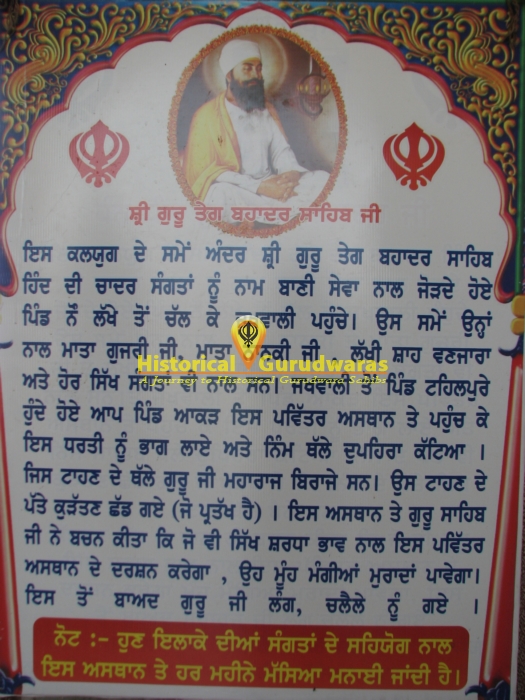 ਸ਼੍ਰੀ ਗੁਰੂ ਤੇਗ ਬਹਾਦਰ ਸਾਹਿਬ ਜੀ
ਇਸ ਕਲਯੁਗ ਦੇ ਸਮੇਂ ਅੰਦਰ ਸ਼੍ਰੀ ਗੁਰੂ ਤੇਗ ਬਹਾਦਰ ਸਾਹਿਬ
ਹਿੰਦ ਦੀ ਚਾਦਰ ਸੰਗਤਾਂ ਨੂੰ ਨਾਮ ਬਾਣੀ ਸੇਵਾ ਨਾਲ ਜੋੜਦੇ ਹੋਏ
ਪਿੰਡ ਨੌ ਲੱਖੇ ਤੋਂ ਚੱਲ ਕੇ ਪਹੁੰਚੇ। ਉਸ ਸਮੇਂ ਉਨ੍ਹਾਂ
ਨਾਲ ਮਾਤਾ ਗੁਜਰੀ ਜੀ, ਮਾਤਾ ਜੀ, ਲੱਖੀ ਸ਼ਾਹ ਵਣਜਾਰਾ
Historical Gurudwaras
A Journey to Historical Gurudwara Sahibs
ਅਤੇ ਹੋਰ ਸਿੱਖ ਸੰਗਤਾਂ ਵੀ ਨਾਲ ਸਨ। ਜਖਵਾਲੀ ਤੋਂ ਪਿੰਡ ਟਹਿਲਪੁਰੇ
ਹੁੰਦੇ ਹੋਏ ਆਪ ਪਿੰਡ ਆਕੜ ਇਸ ਪਵਿੱਤਰ ਅਸਥਾਨ ਤੇ ਪਹੁੰਚ ਕੇ
ਇਸ ਧਰਤੀ ਨੂੰ ਭਾਗ ਲਾਏ ਅਤੇ ਨਿੰਮ ਥੱਲੇ ਦੁਪਹਿਰਾ ਕੱਟਿਆ ।
ਜਿਸ ਟਾਹਣ ਦੇ ਥੱਲੇ ਗੁਰੂ ਜੀ ਮਹਾਰਾਜ ਬਿਰਾਜੇ ਸਨ। ਉਸ ਟਾਹਣ ਦੇ
ਪੱਤੇ ਕੁੜੱਤਣ ਛੱਡ ਗਏ (ਜੋ ਪ੍ਰਤੱਖ ਹੈ) । ਇਸ ਅਸਥਾਨ ਤੇ ਗੁਰੂ ਸਾਹਿਬ
ਜੀ ਨੇ ਬਚਨ ਕੀਤਾ ਕਿ ਜੋ ਵੀ ਸਿੱਖ ਸ਼ਰਧਾ ਭਾਵ ਨਾਲ ਇਸ ਪਵਿੱਤਰ
ਅਸਥਾਨ ਦੇ ਦਰਸ਼ਨ ਕਰੇਗਾ , ਉਹ ਮੂੰਹ ਮੰਗੀਆਂ ਮੁਰਾਦਾਂ ਪਾਵੇਗਾ।
ਇਸ ਤੋਂ ਬਾਅਦ ਗੁਰੂ ਜੀ ਲੰਗ, ਚਲੈਲੇ ਨੂੰ ਗਏ ।
ਨੋਟ :- ਹੁਣ ਇਲਾਕੇ ਦੀਆਂ ਸੰਗਤਾਂ ਦੇ ਸਹਿਯੋਗ ਨਾਲ
ਇਸ ਅਸਥਾਨ ਤੇ ਹਰ ਮਹੀਨੇ ਮੱਸਿਆ ਮਨਾਈ ਜਾਂਦੀ ਹੈ।